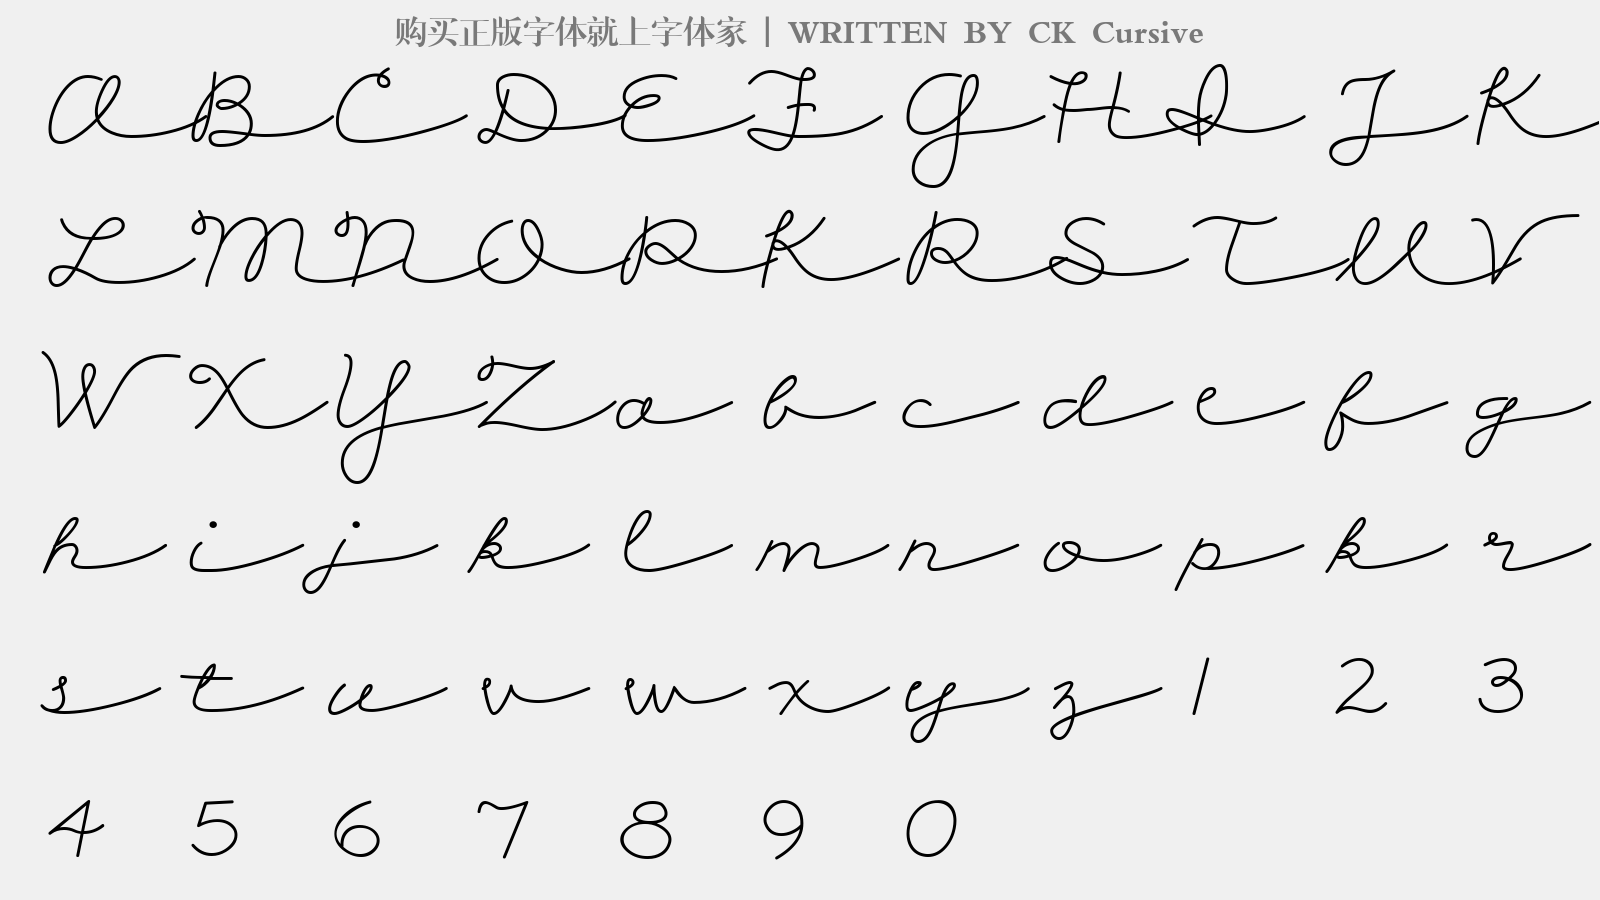 购买正版字体就上字体家 | WRITTEN BY CK Cursive
A B C D E F G H I J K
L M N O P K R S T U V
W X Y Z a b c d e f g
h i j k l m n o p k r
s t u v w x y z 1 2 3
4 5 6 7 8 9 0